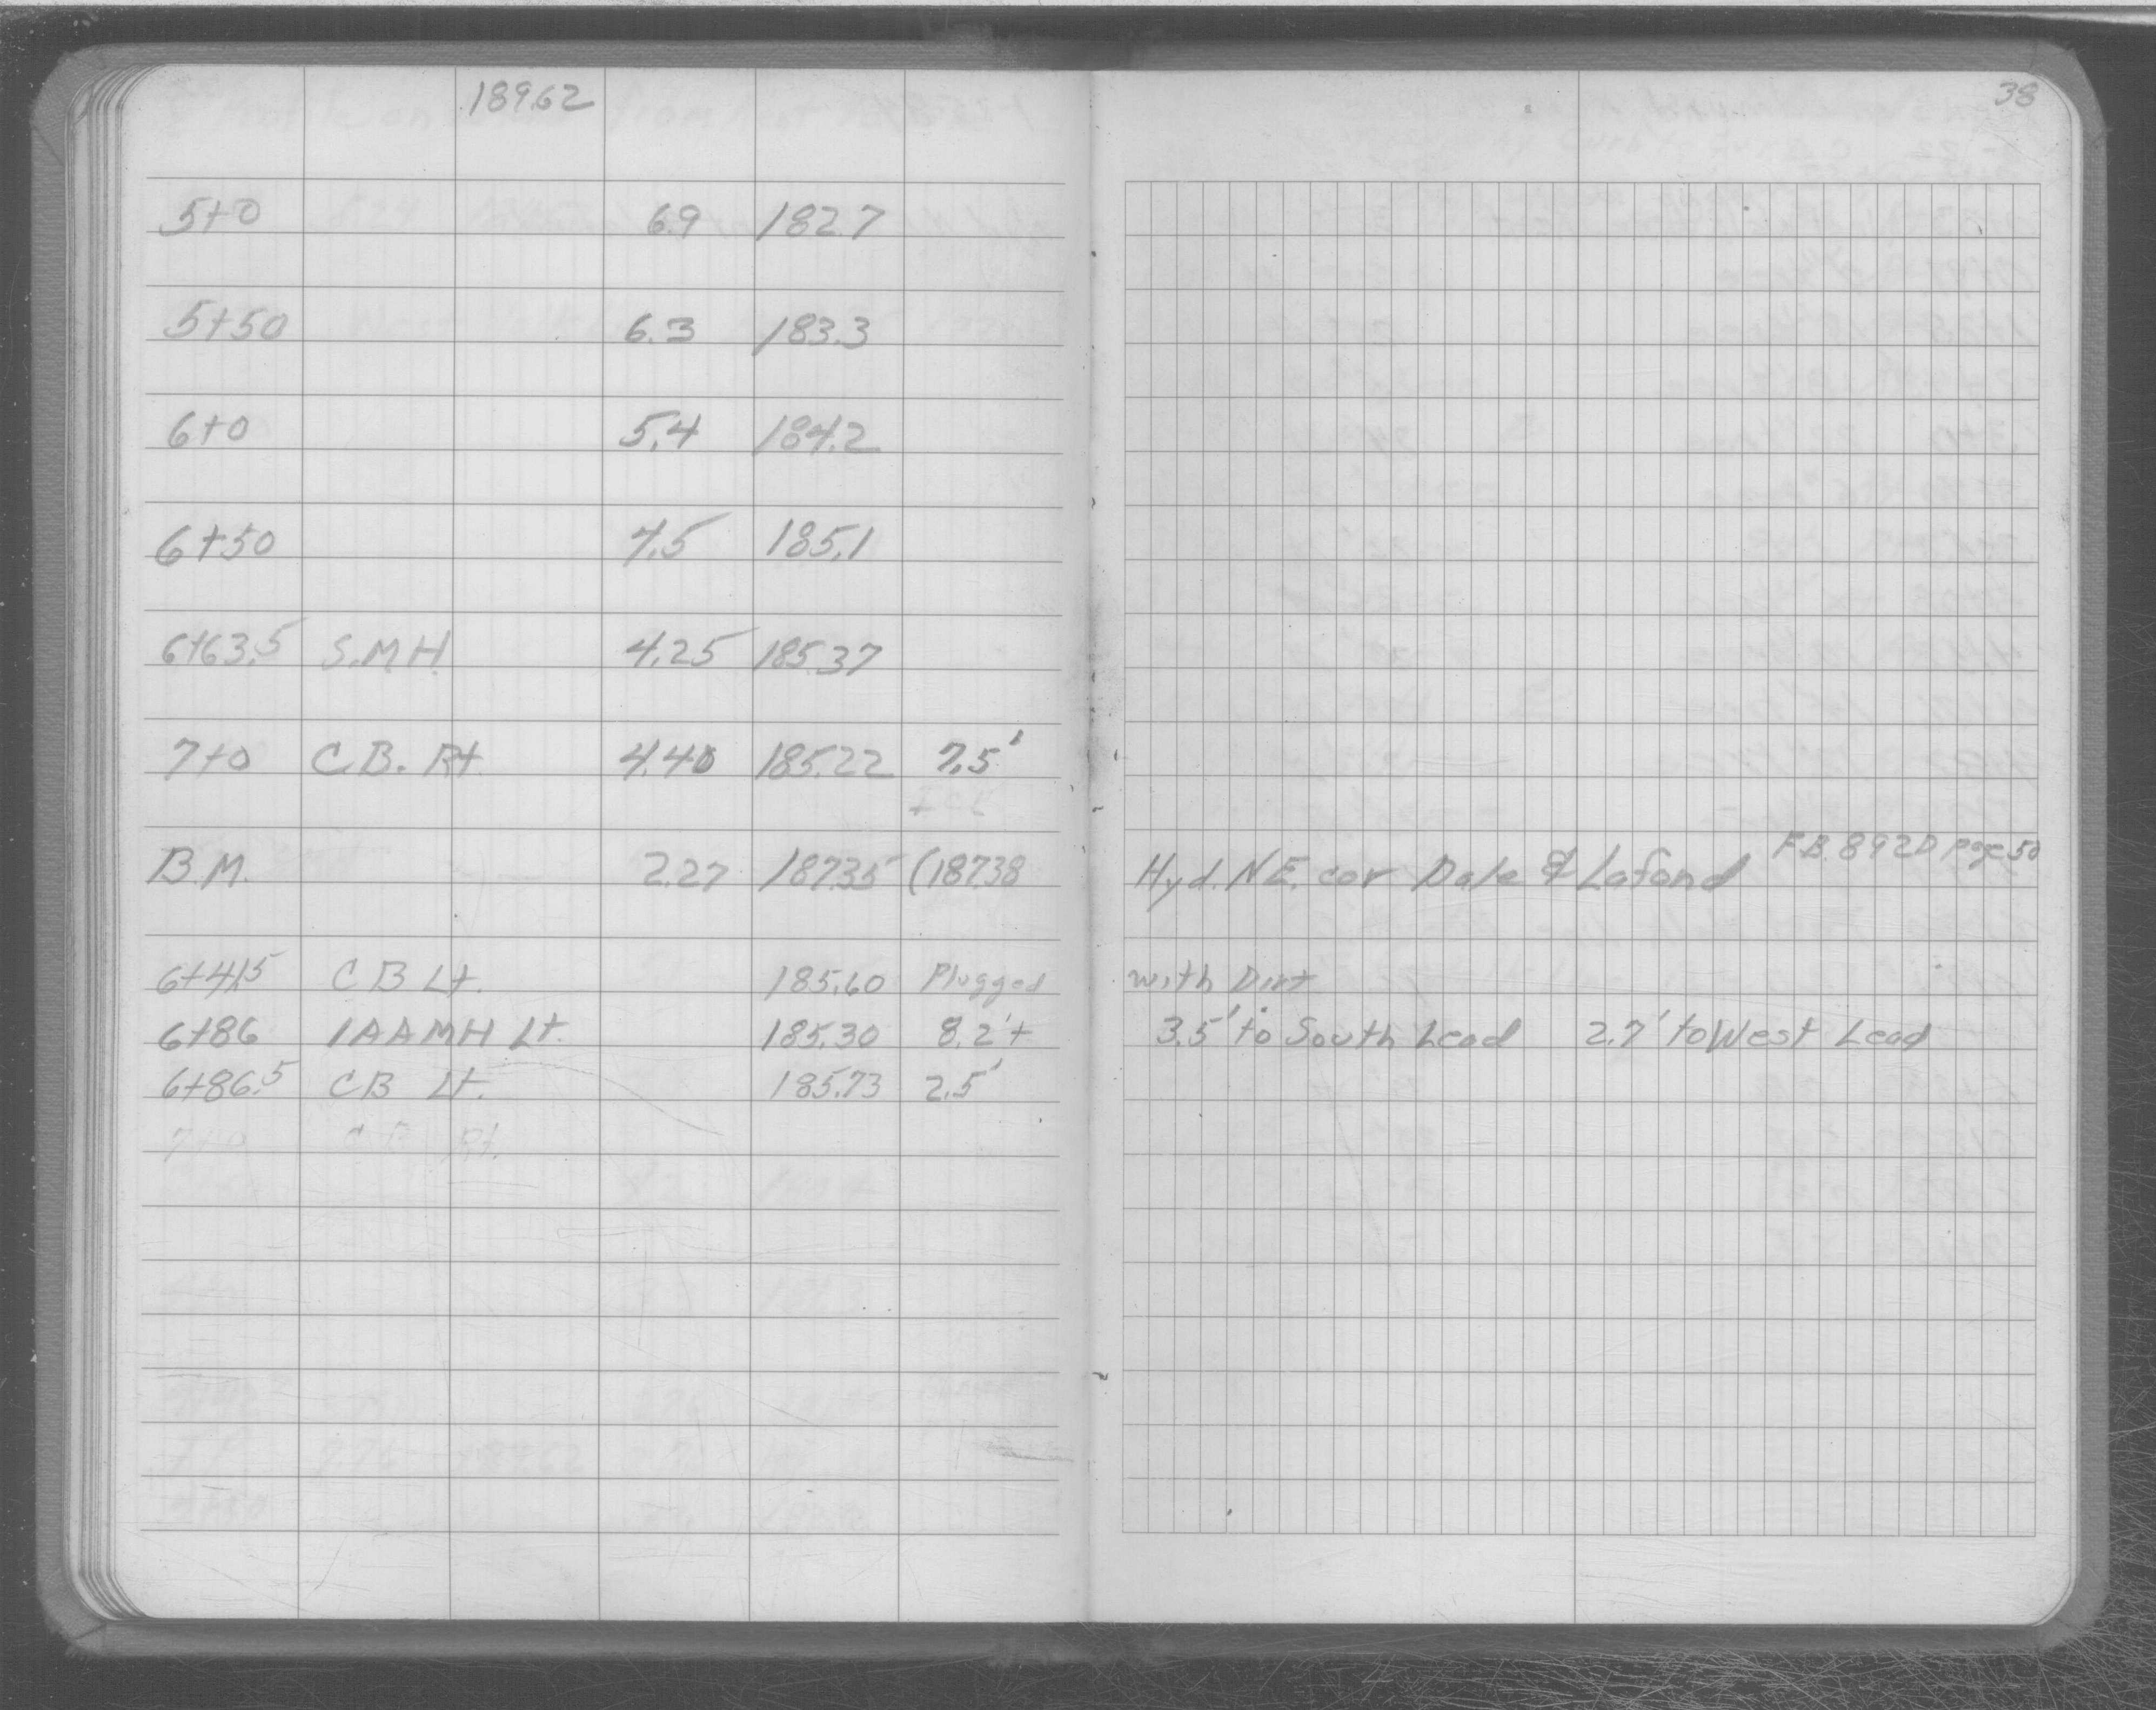 189.62
38
5+0 6.9 182.7
5+50 6.3 183.3
6+0 5.4 184.2
6+50 4.5 185.1
6+63.5 S.M.H. 4.25 185.37
7+0 C.B. Rt. 4.40 185.22 7.5'
F.B. 892D Page 50
B.M. 2.27 187.35 (187.38 Hyd. N.E. cor Dale & Lafond
6+41.5 CB Lt. 185.60 Plugged with Dirt
6+86 1AAMH Lt. 185.30 8.2'+ 3.5' to South Lead 2.7' to West Lead
6+86.5 CB Lt. 185.73 2.5'
7+0 CB Rt.